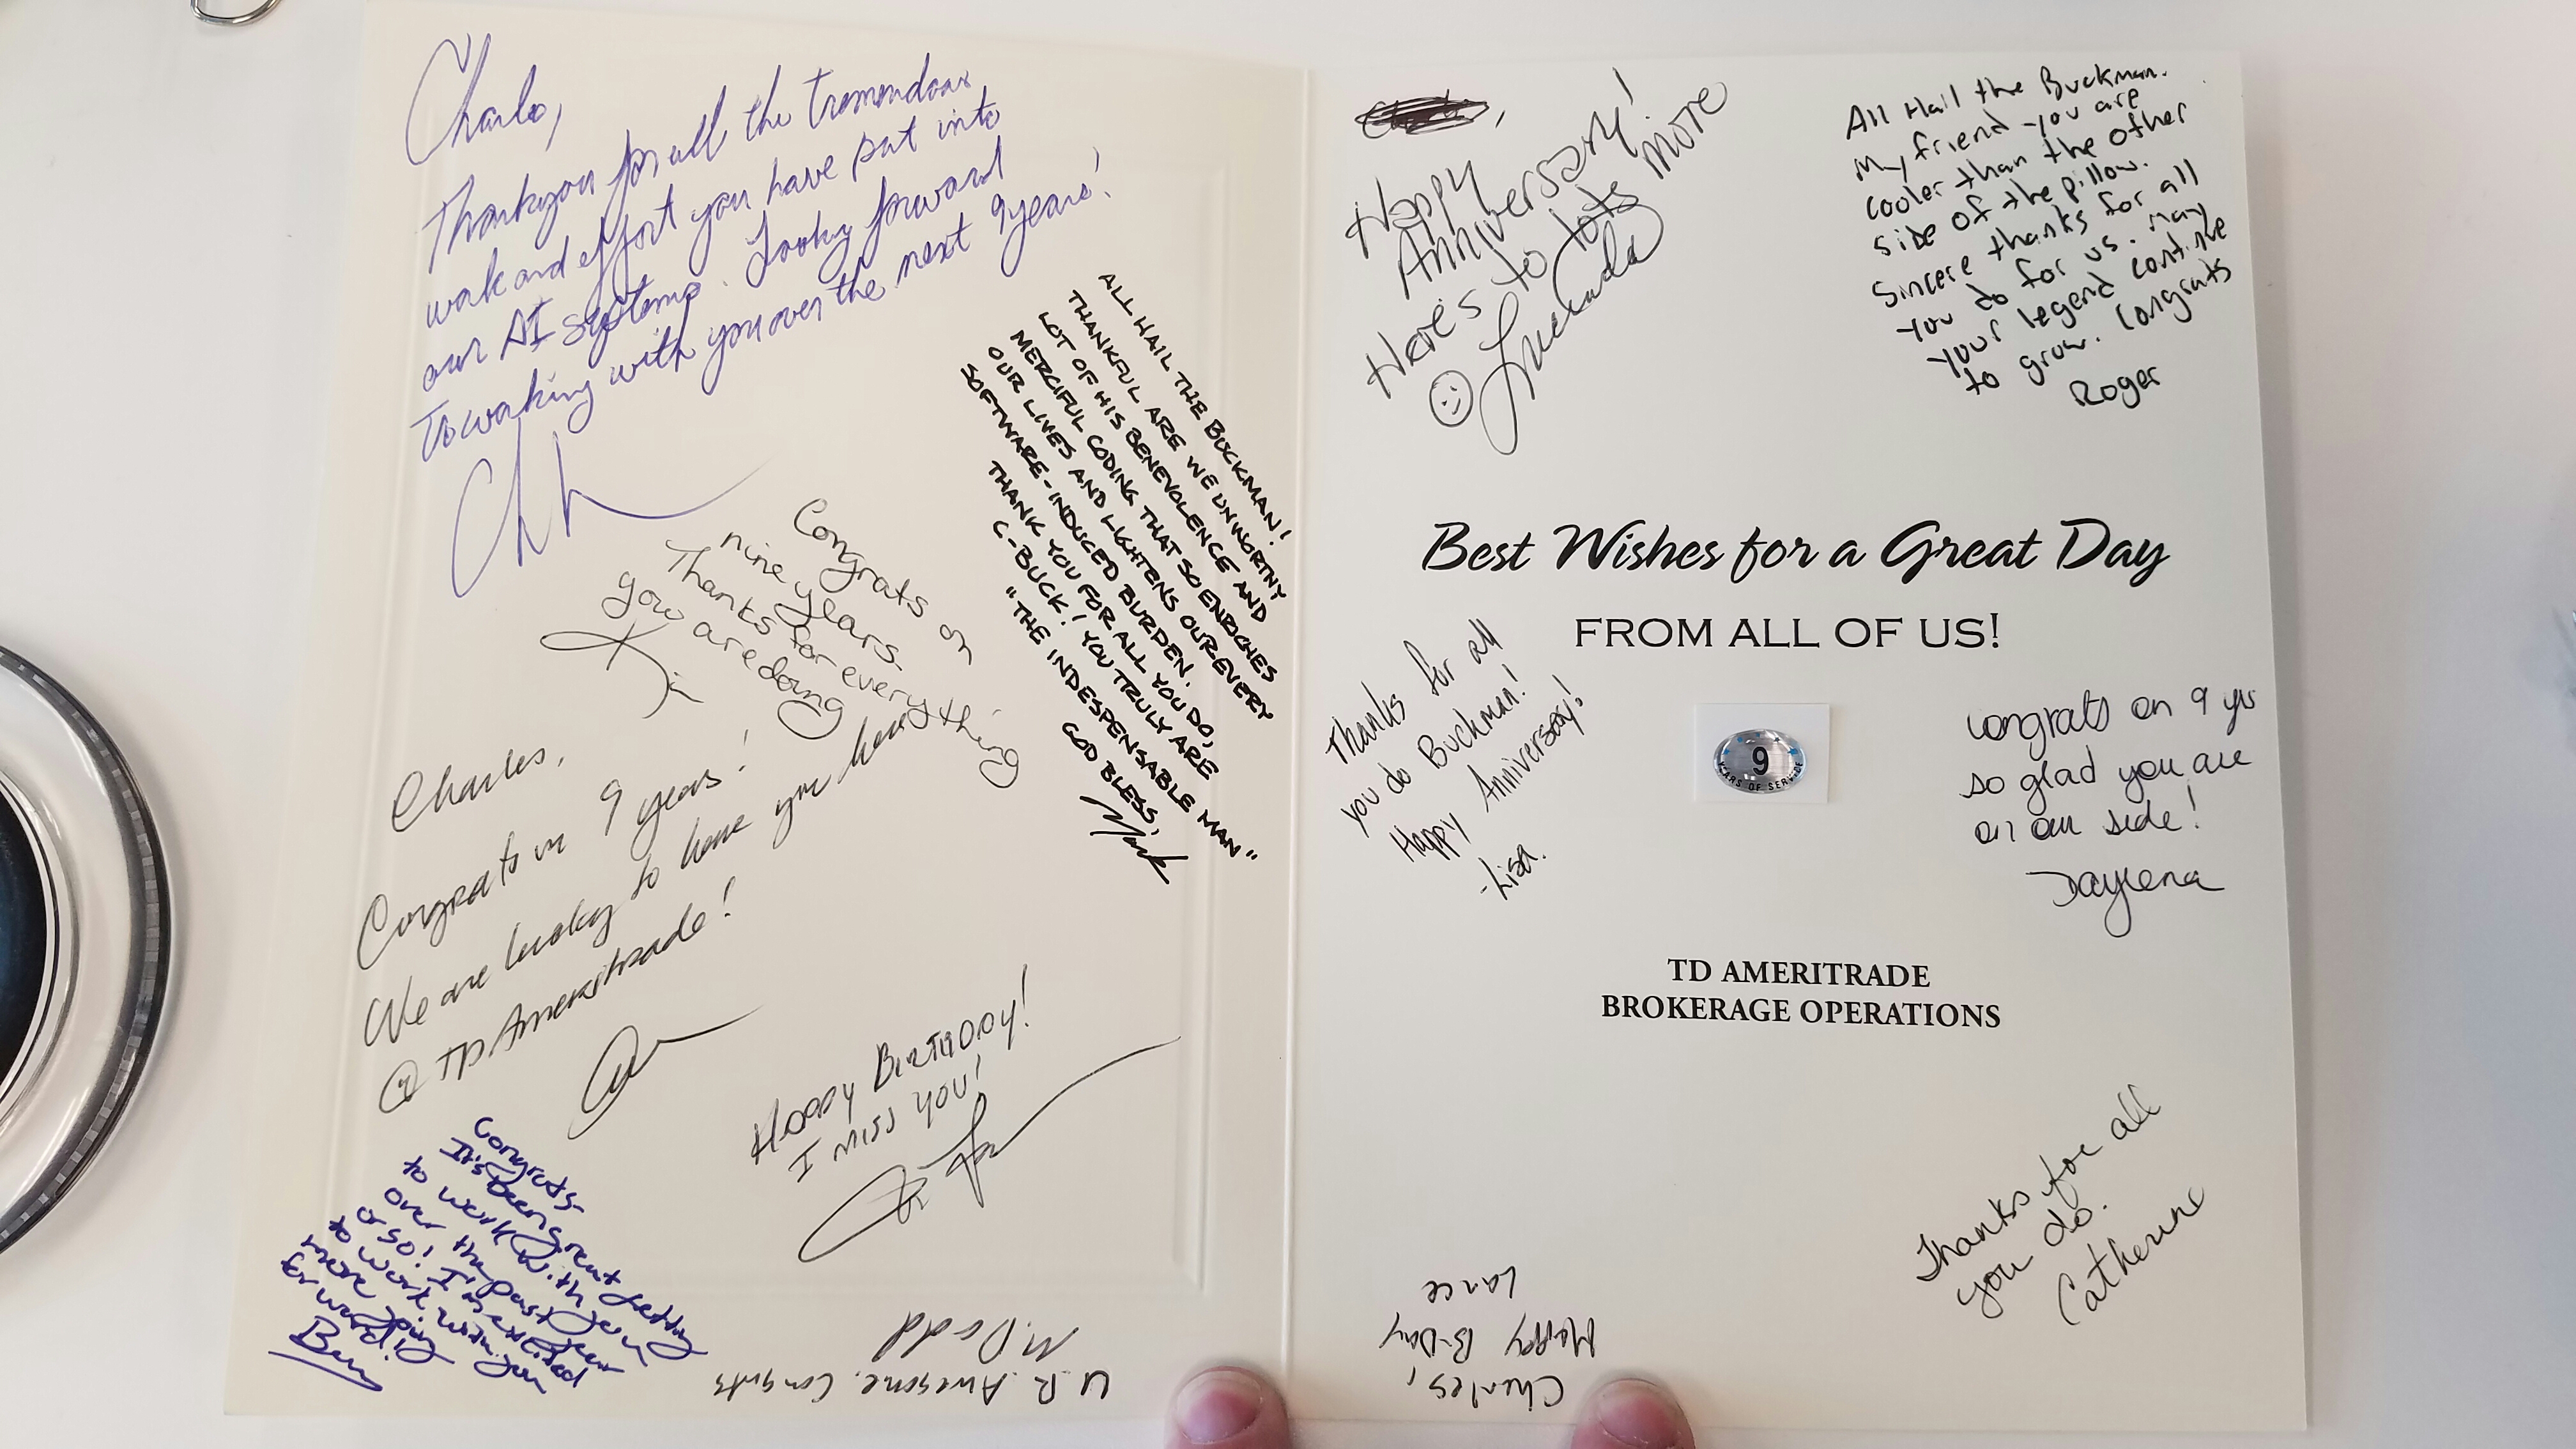 Charles,
Thankyou for all the tremendous
work and effort you have put into
our AI systems. Looking forward
To working with you over the next 9 years!
ALL HAIL THE BUCKMAN!
THANKFUL ARE WE UNWORTHY
LOT OF HIS BENEVOLENCE AND
MERCIFUL CODING THAT SO ENRICHES
OUR LIVES AND LIGHTENS OUR EVERY
SOFTWARE-INDUCED BURDEN.
THANK YOU FOR ALL YOU DO,
C-BUCK! YOU TRULY ARE
"THE INDESPENSABLE MAN"
GOD BLESS,
Mark
Congrats on
nine years.
Thanks for everything
you are doing
Charles,
Congrats on 9 years!
We are lucky to have you here
@ TD Ameritrade!
Happy Birthday!
I miss you!
Congrats-
It's been great getting
to work with you
over the past year
or so! I'm excited
to work with you
more going
forward!
Ben
U.R. Awesome. Congrats
M. Dodd
Happy
Anniversary!
Here's to lots more
All Hail the Buckman.
My friend you are
cooler than the other
side of the pillow.
Sincere thanks for all
you do for us. May
your legend continue
to grow. Congrats
Roger
Best Wishes for a Great Day
FROM ALL OF US!
Thanks for all
you do Buckman!
Happy Anniversary!
-Lisa.
9
YEARS OF SERVICE
Congrats on 9 yrs
so glad you are
on our side!
Daylena
TD AMERITRADE
BROKERAGE OPERATIONS
Thanks for all
you do.
Catherine
Charles,
Happy B-Day
Lance